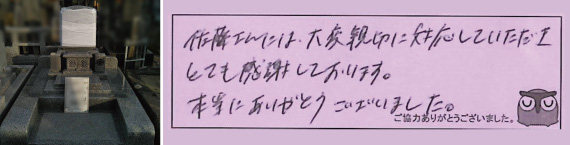 佐藤さんには、大変親切に対応していただき
とても感謝しております。
本当にありがとうございました。
ご協力ありがとうございました。